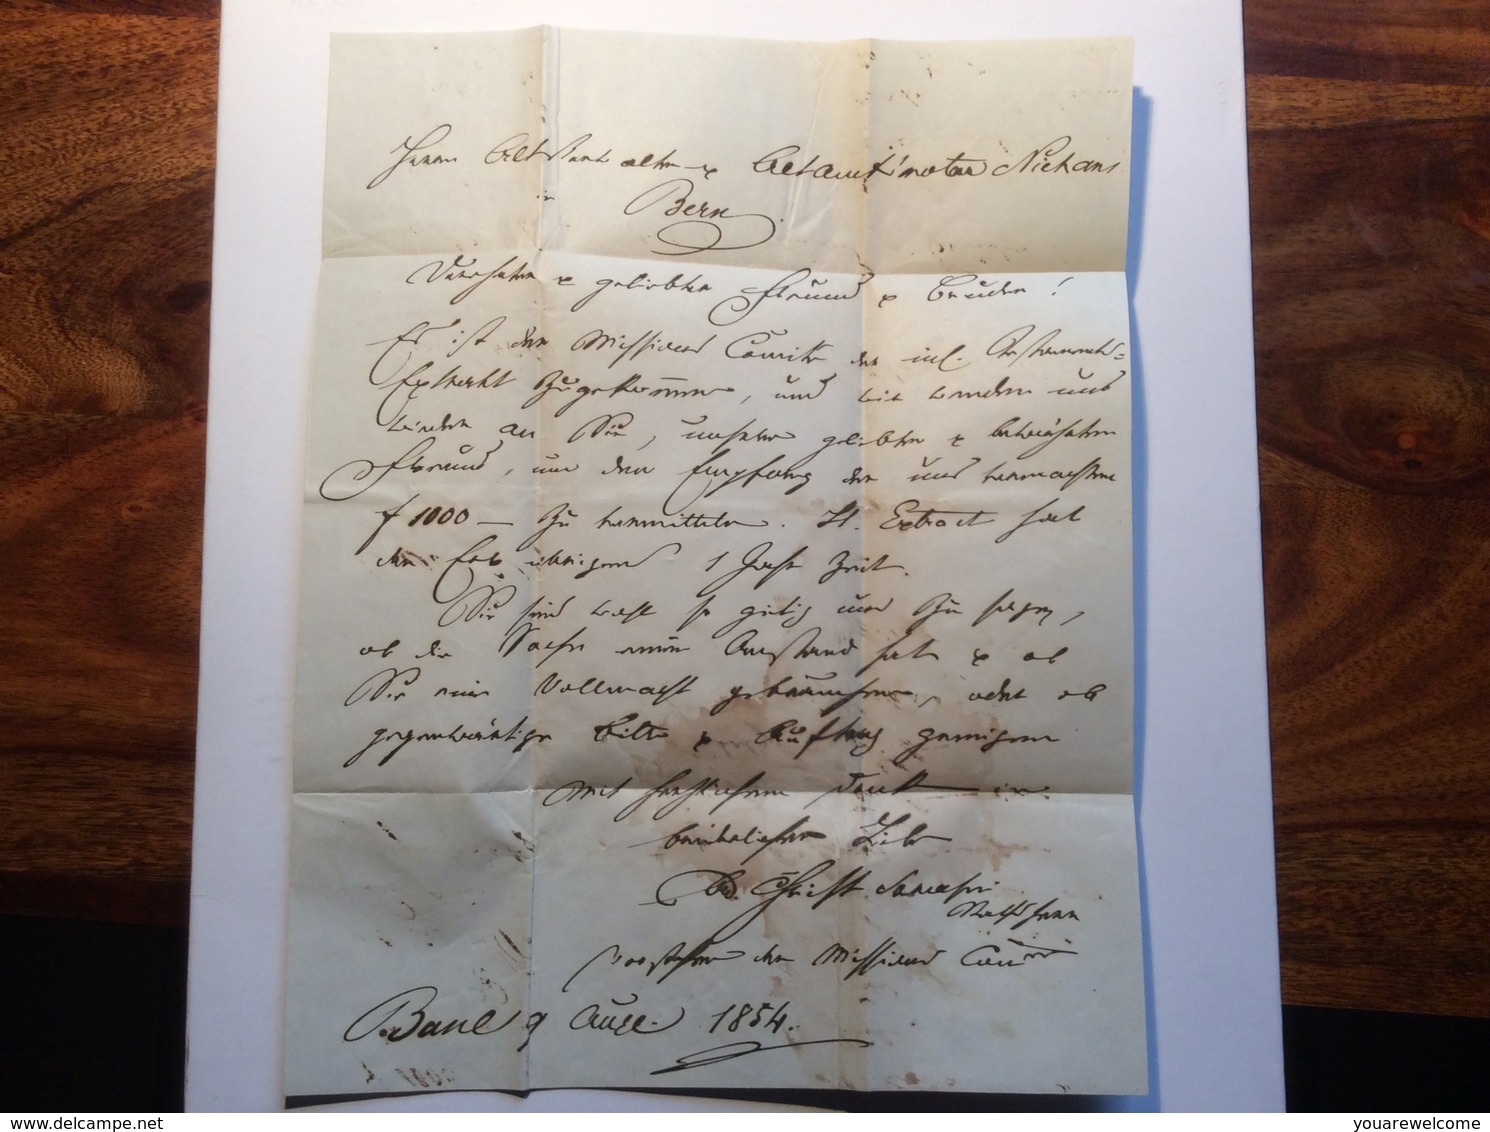 Herrn Alt Statthalter & Alt Amtsnotar Niehans
in Bern.
Verehrter & geliebter Freund & Bruder!
Es ist der Missions Comite der incl. Testaments=
Extrakt zugekommen, und wir wenden uns
wieder an Sie, unsern geliebten & bewährten
Freund, um den Empfang der uns vermachten
f 1000 — zu vermitteln. Lt. Extract hat
der Erb übrigens 1 Jahr Zeit.
Sie sind wohl so gütig uns zu sagen,
ob die Sache einen Anstand hat & ob
Sie eine Vollmacht gebrauchen, oder ob
gegenwärtige Bitte & Auftrag genügen
Mit herzlichem Dank in
brüderlicher Liebe
Christ
Rathsherr
Vorsteher der Missions Comite
Basel 9 Aug. 1854.
youarewelcome